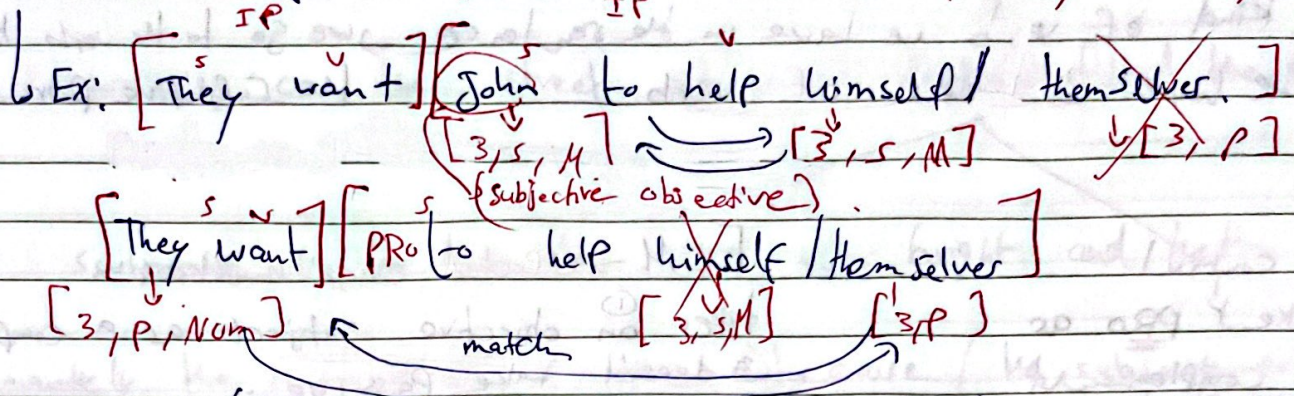 IP IP
s v s v
Ex: [They want] [John to help himself / themselves.]
[3, s, M] [3, s, M] [3, P]
(subjective objective)
s v s
[They want] [PRO to help himself / themselves]
[3, P, Nom] [3, s, M] [3, P]
match